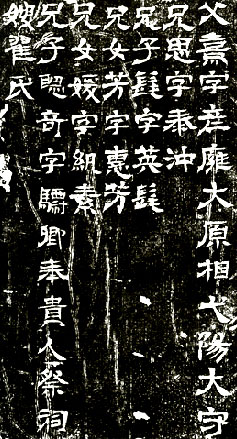 父熹字彥雍大原相弋陽大守
兄思字泰沖
兄子髦字英髦
兄女芳字惠芳
兄女媛字紈素
兄子聰奇字驃卿奉貴人祭祠
嫂翟氏